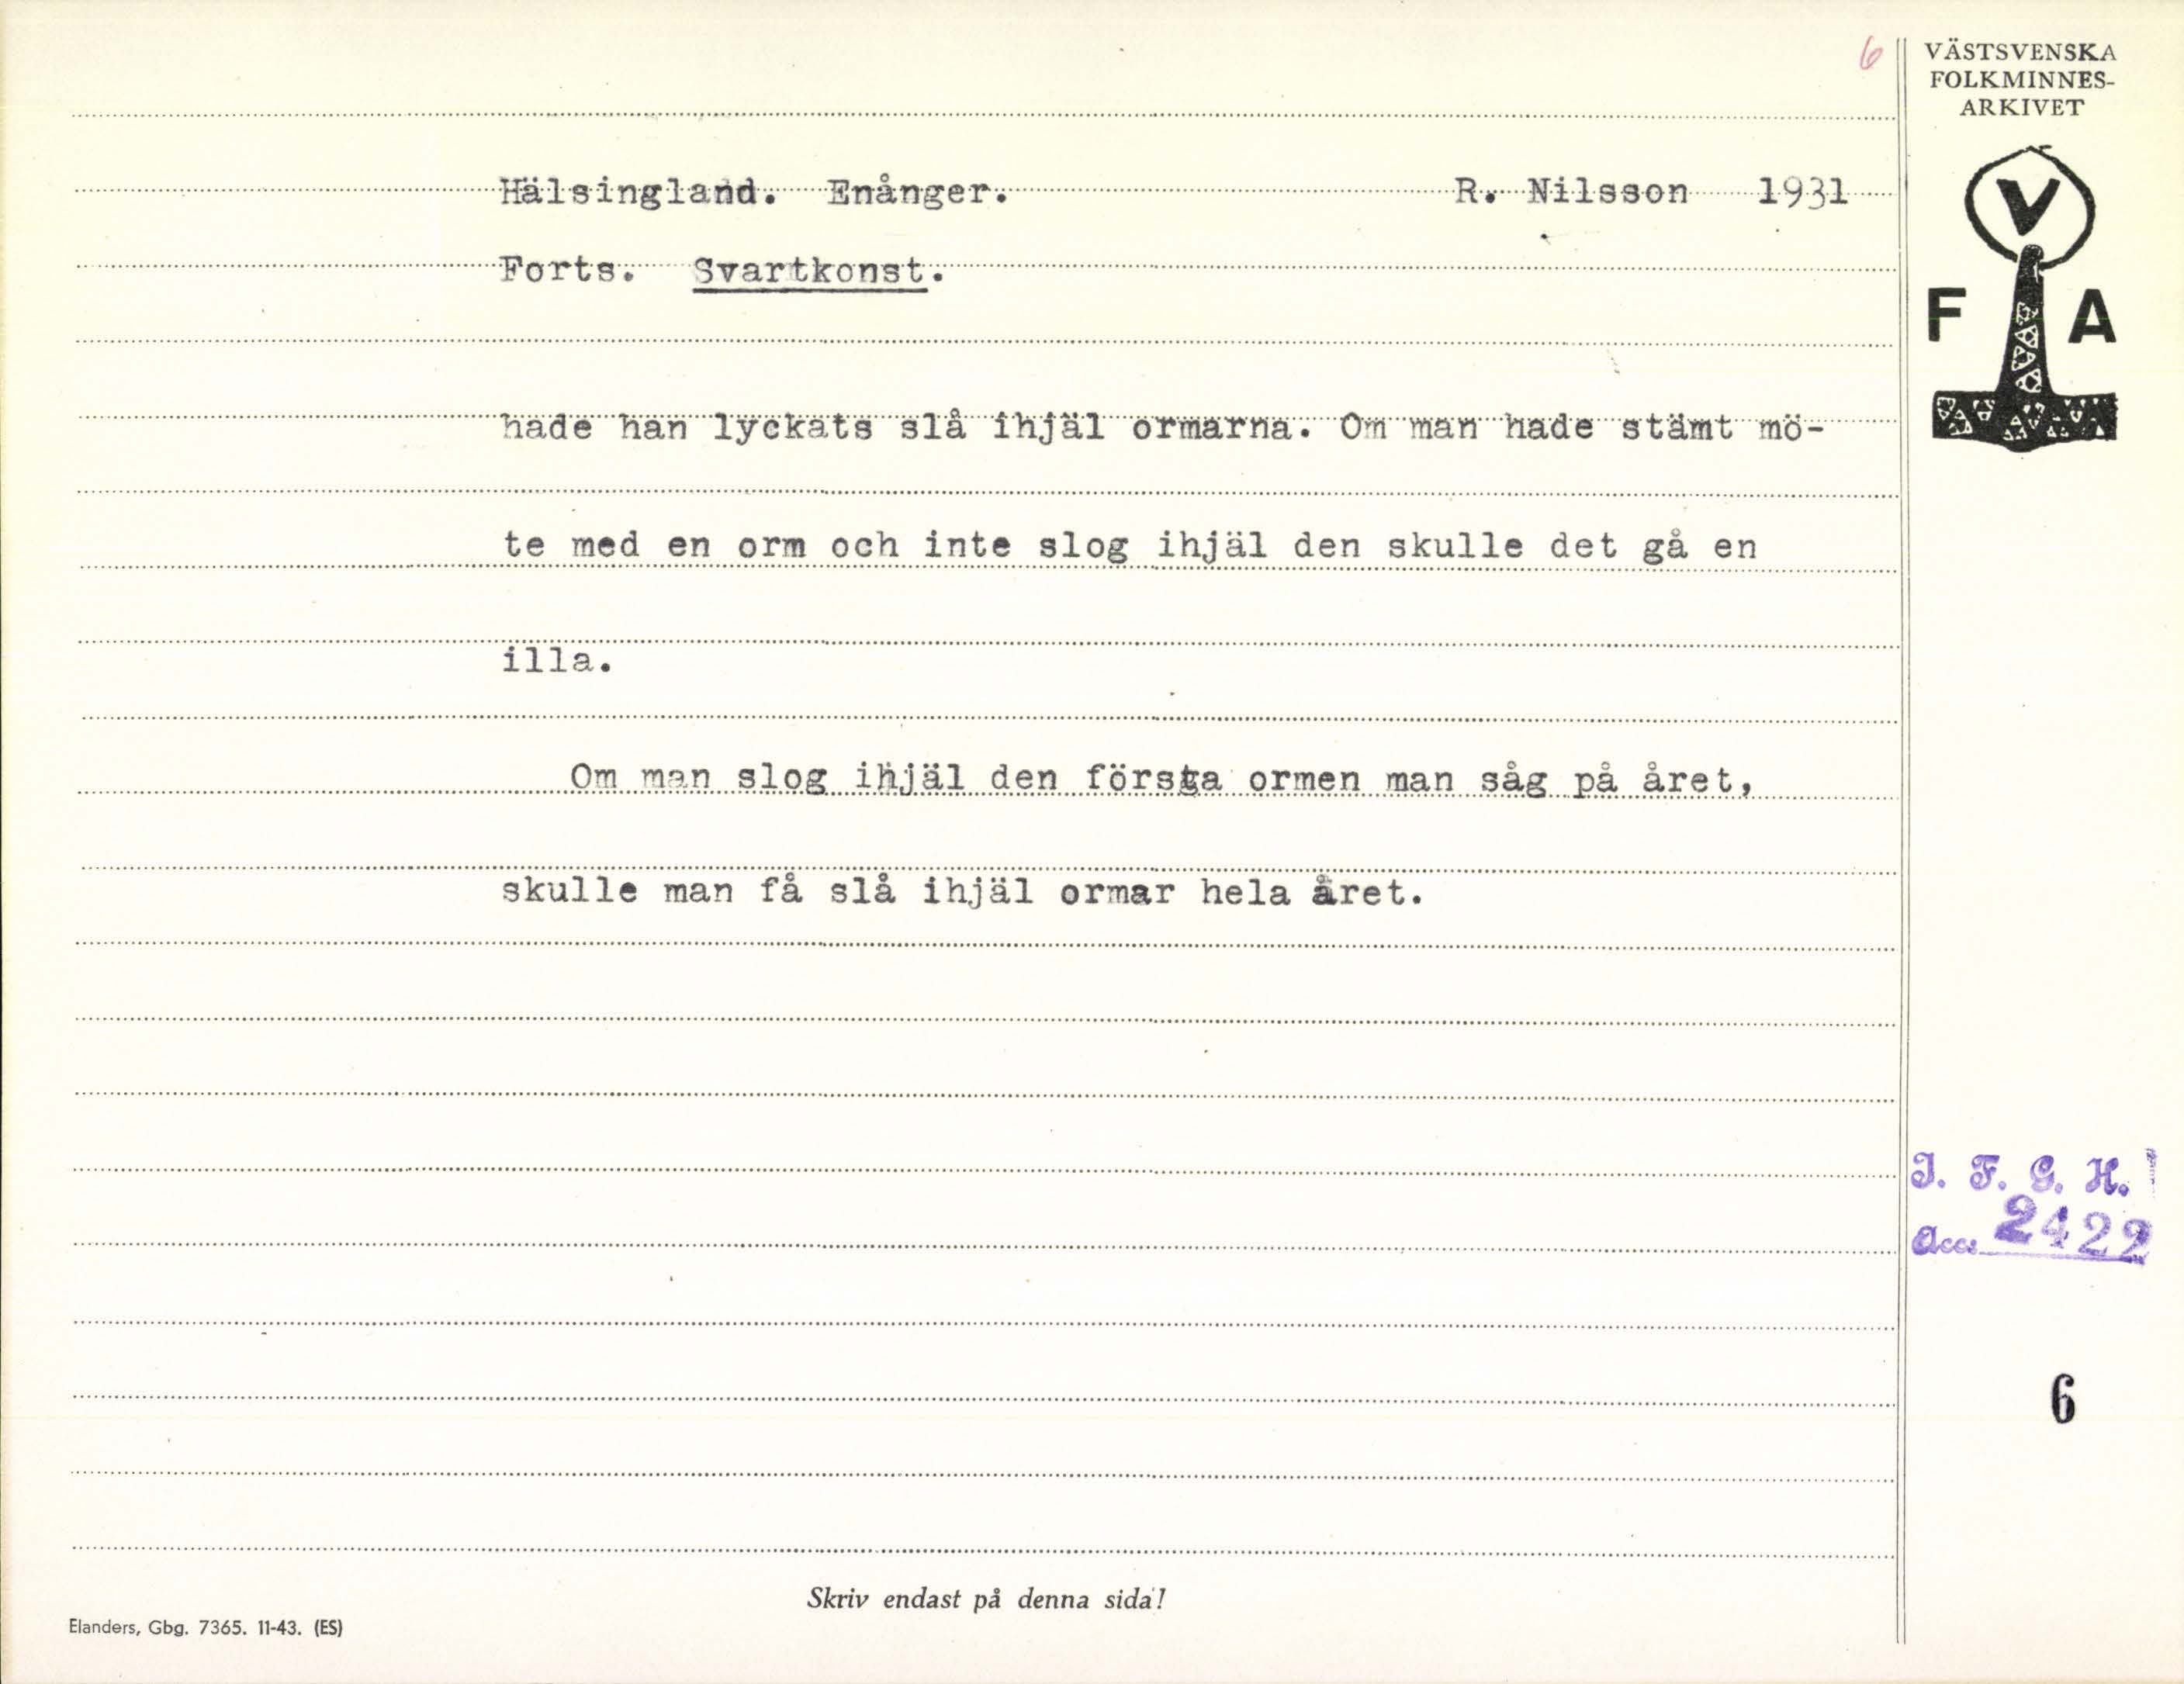 6
VÄSTSVENSKA
FOLKMINNES-
ARKIVET
V
F A
Hälsingland. Enånger. R. Nilsson 1931
Forts. Svartkonst.
hade han lyckats slå ihjäl ormarna. Om man hade stämt mö-
te med en orm och inte slog ihjäl den skulle det gå en
illa.
Om man slog ihjäl den första ormen man såg på året,
skulle man få slå ihjäl ormar hela året.
I. F. G. H.
Acc. 2422
6
Skriv endast på denna sida!
Elanders, Gbg. 7365. 11-43. (ES)